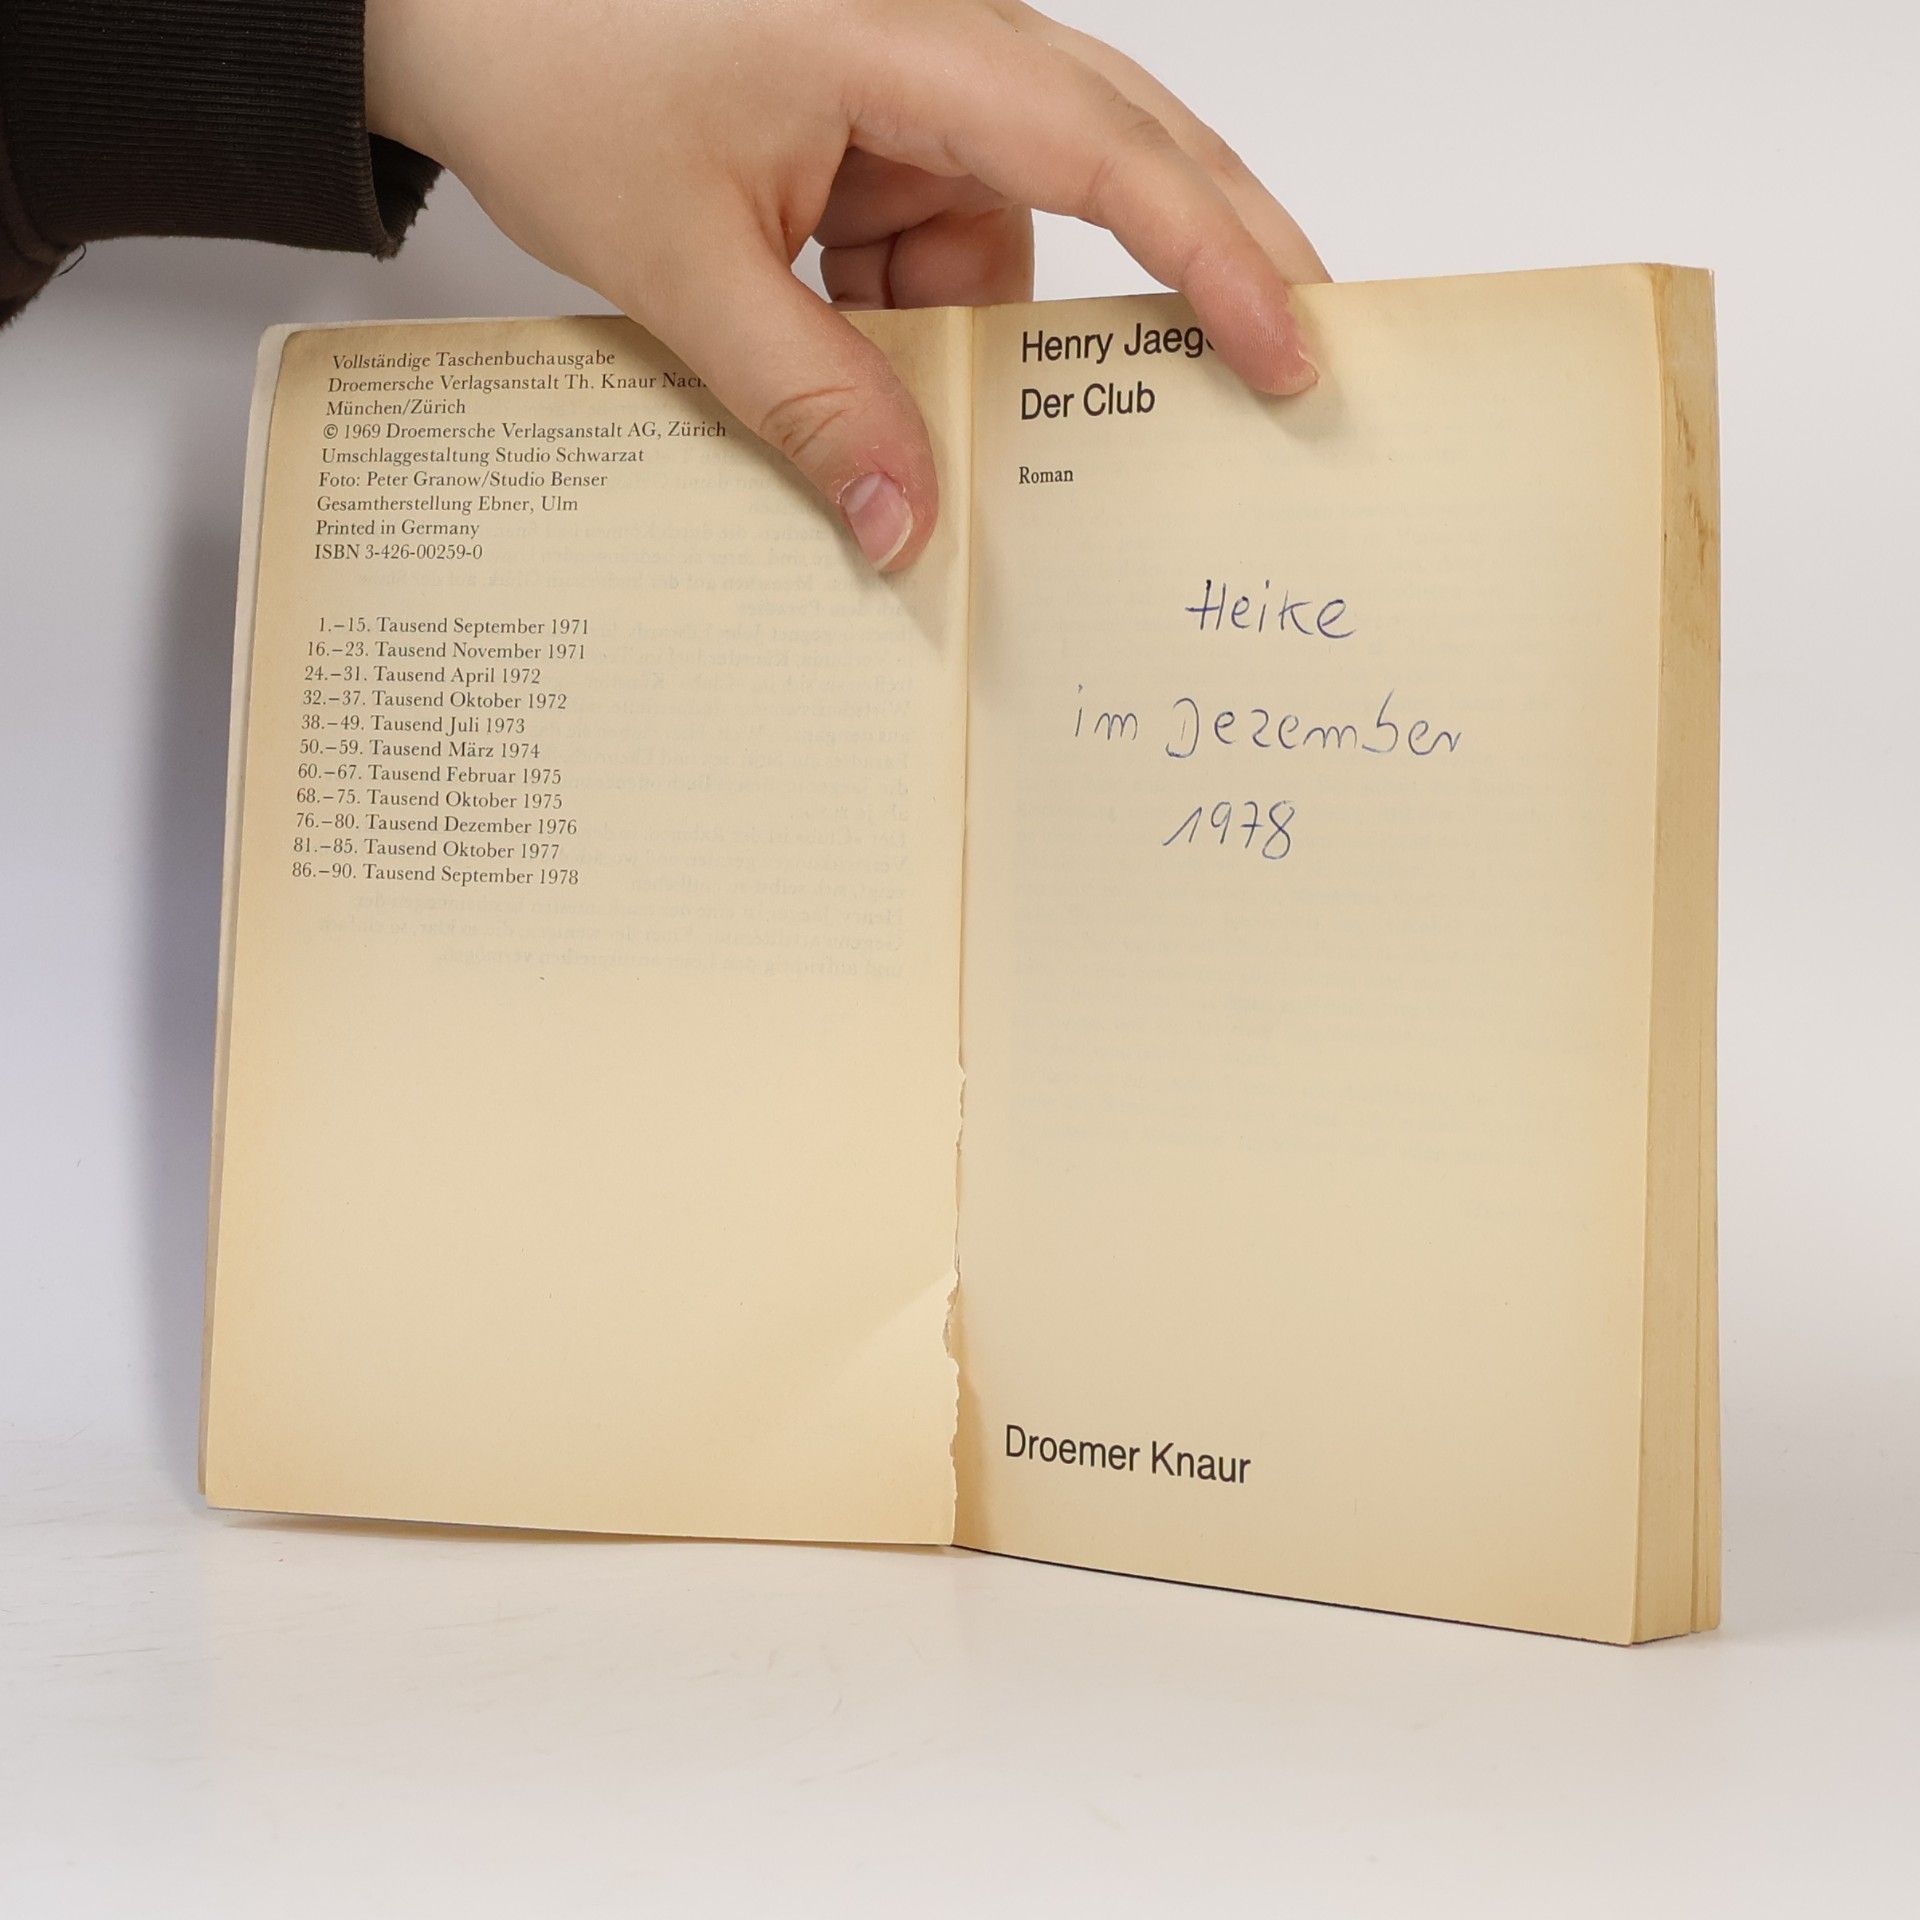 Vollständige Taschenbuchausgabe
Droemersche Verlagsanstalt Th. Knaur
München/Zürich
© 1969 Droemersche Verlagsanstalt AG, Zürich
Umschlaggestaltung Studio Schwarzat
Foto: Peter Granow/Studio Benser
Gesamtherstellung Ebner, Ulm
Printed in Germany
ISBN 3-426-00259-0
1.–15. Tausend September 1971
16.–23. Tausend November 1971
24.–31. Tausend April 1972
32.–37. Tausend Oktober 1972
38.–49. Tausend Juli 1973
50.–59. Tausend März 1974
60.–67. Tausend Februar 1975
68.–75. Tausend Oktober 1975
76.–80. Tausend Dezember 1976
81.–85. Tausend Oktober 1977
86.–90. Tausend September 1978
Henry
Der Club
Roman
Heike
im Dezember
1978
Droemer Knaur